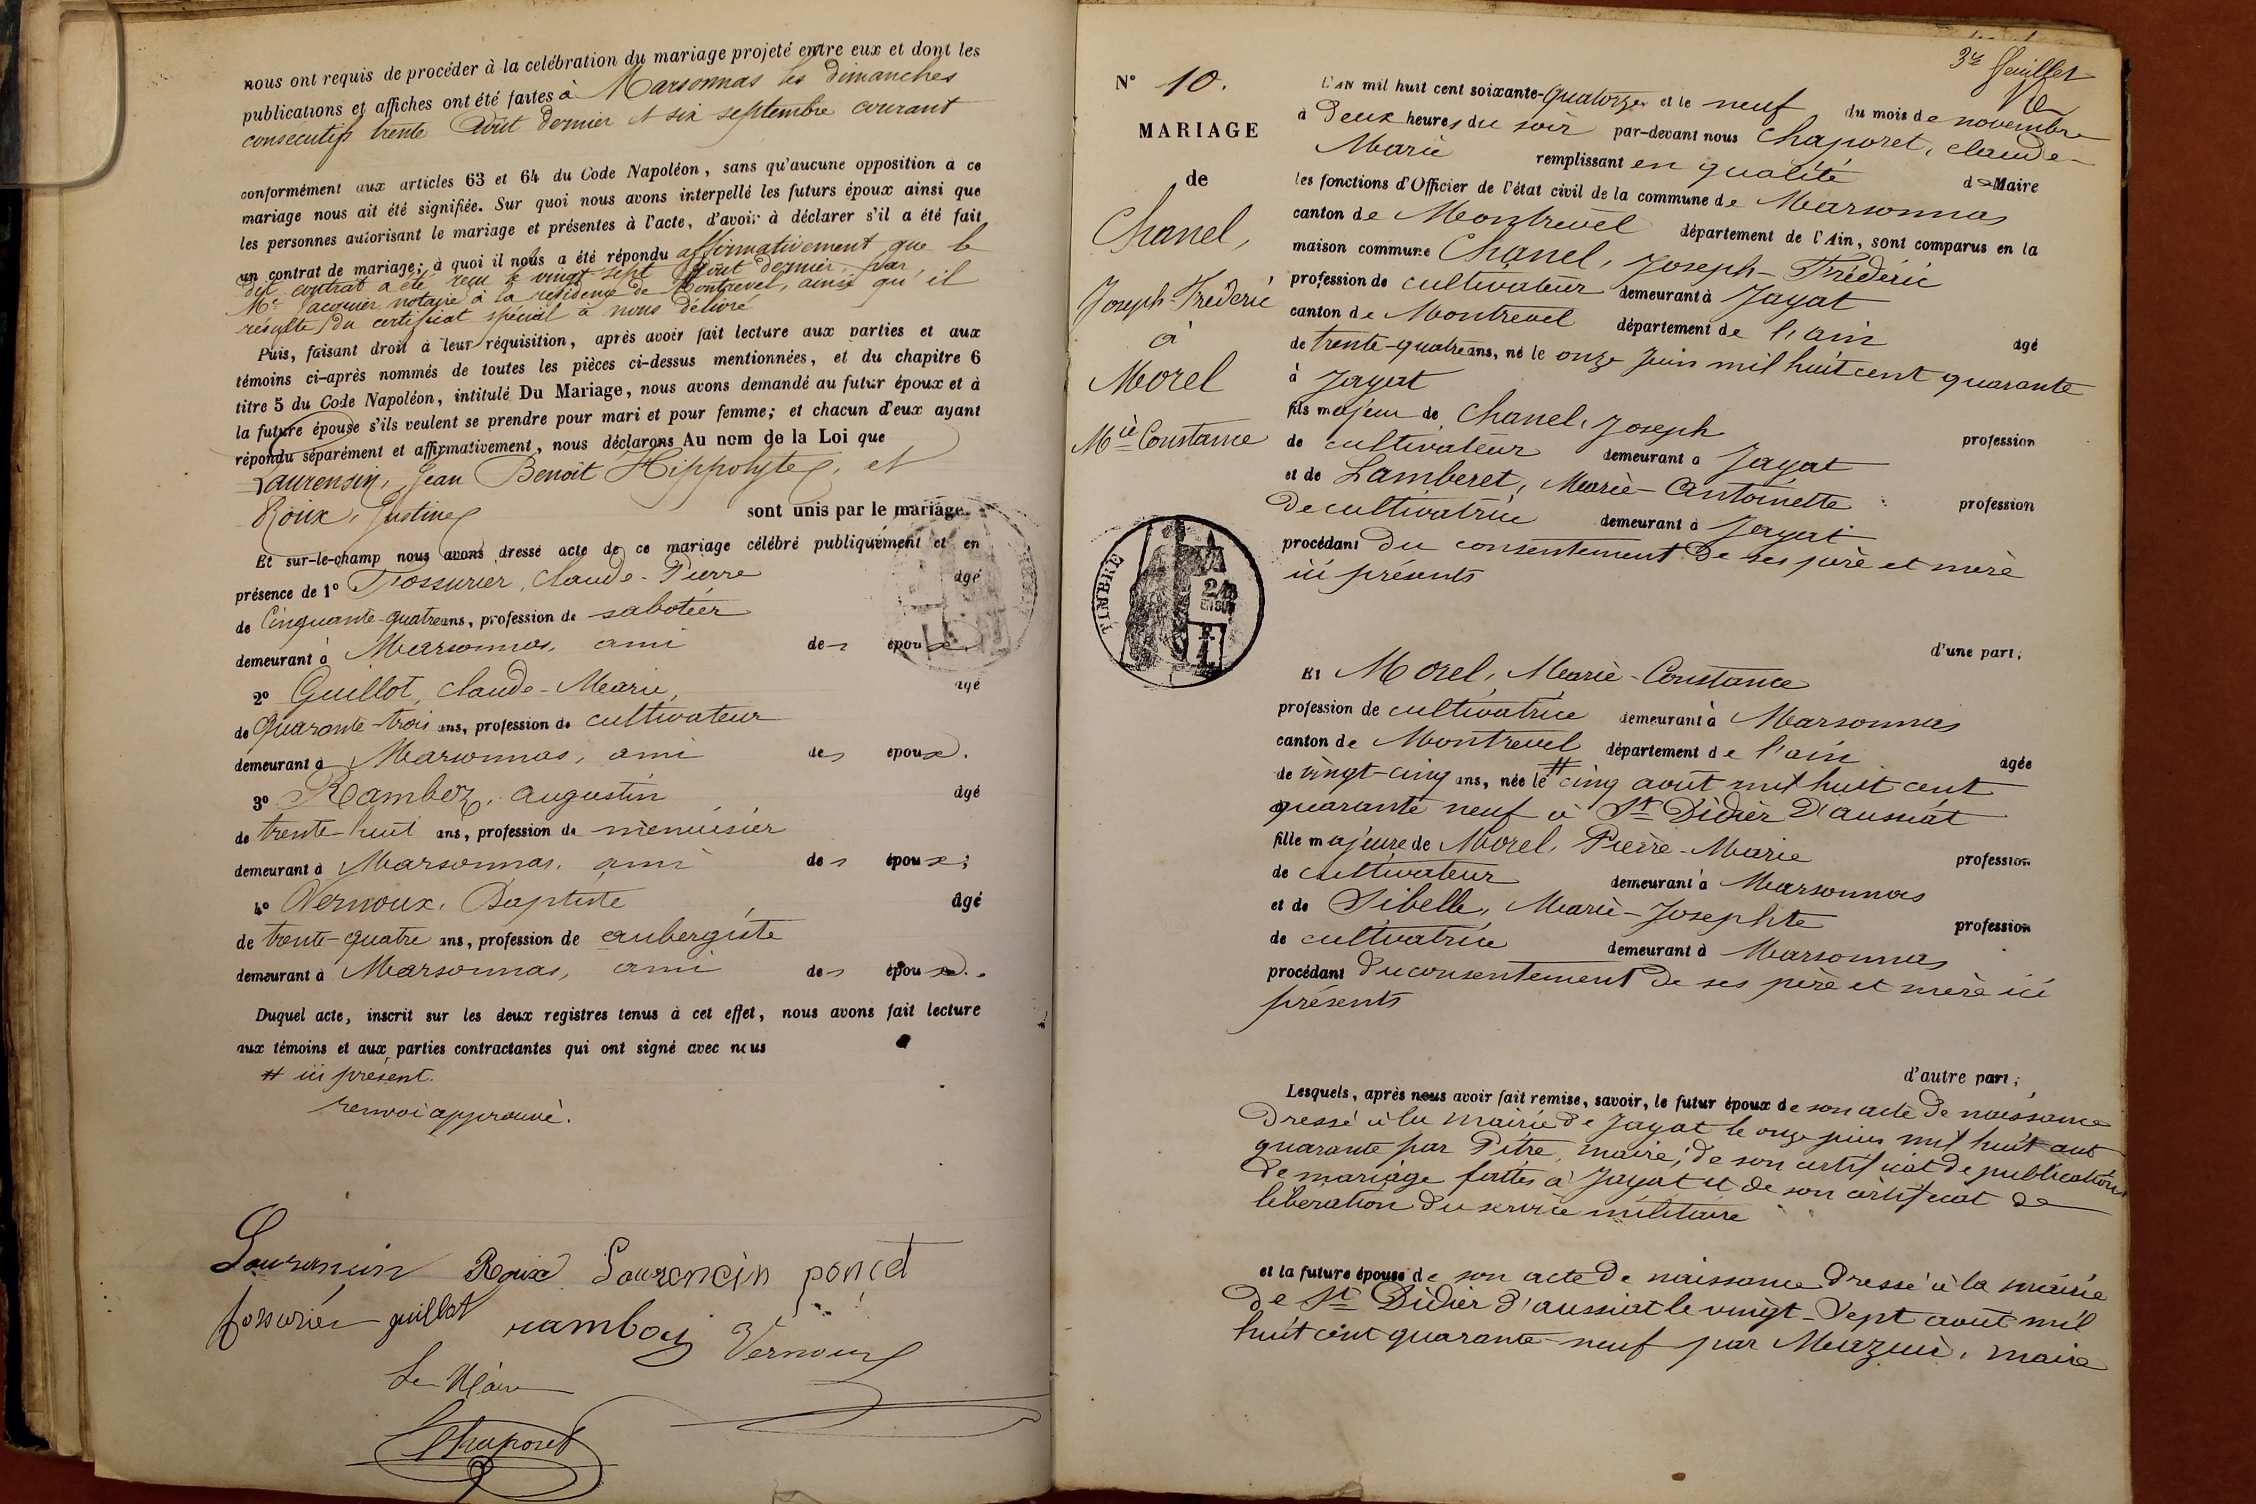 nous ont requis de procéder à la celébration du mariage projeté entre eux et dont les
publications et affiches ont été faites à Marsonnas les dimanches
consécutifs trente Août dernier et six septembre courant
conformément aux articles 63 et 64 du Code Napoléon, sans qu'aucune opposition à ce
mariage nous ait été signifiée. Sur quoi nous avons interpellé les futurs époux ainsi que
les personnes autorisant le mariage et présentes à l'acte, d'avoir à déclarer s'il a été fait
un contrat de mariage; à quoi il nous a été répondu affirmativement que le
dit contrat a été reçu le vingt sept Août dernier par
Me Jacquier notaire à la résidence de Montrevel, ainsi qu'il
résulte du certificat spécial à nous délivré
Puis, faisant droit à leur réquisition, après avoir fait lecture aux parties et aux
témoins ci-après nommés de toutes les pièces ci-dessus mentionnées, et du chapitre 6
titre 5 du Code Napoléon, intitulé Du Mariage, nous avons demandé au futur époux et à
la future épouse s'ils veulent se prendre pour mari et pour femme; et chacun d'eux ayant
répondu séparément et affirmativement, nous déclarons Au nom de la Loi que
Laurensin, Jean Benoît Hippolyte, et
Roux, Justine sont unis par le mariage.
Et sur-le-champ nous avons dressé acte de ce mariage célébré publiquement et en
présence de 1º Fossurier, Claude-Pierre âgé
de Cinquante-quatre ans, profession de sabotier
demeurant à Marsonnas, ami des époux.
2º Guillot, Claude-Marie, âgé
de Quarante-trois ans, profession de cultivateur
demeurant à Marsonnas, ami des époux.
3º Ramboz, Augustin âgé
de trente-huit ans, profession de menuisier
demeurant à Marsonnas, ami des époux;
4º Vernoux, Baptiste âgé
de trente-quatre ans, profession de aubergiste
demeurant à Marsonnas, ami des époux.
Duquel acte, inscrit sur les deux registres tenus à cet effet, nous avons fait lecture
aux témoins et aux parties contractantes qui ont signé avec nous
# ici présent.
renvoi approuvé.
Laurensin Roux Laurencin poncet
fossurier guillot ramboz Vernoux
Le Maire
Chaporet
3e feuillet
Nº 10.
MARIAGE
de
Chanel,
Joseph-Fréderic
à
Morel
Mie Constance
TIMBRE
L'AN mil huit cent soixante-Quatorze et le neuf du mois de novembre
à Deux heures du soir par-devant nous Chaporet, Claude-
Marie remplissant en qualité de Maire
les fonctions d'Officier de l'état civil de la commune de Marsonnas
canton de Montrevel département de l'Ain, sont comparus en la
maison commune Chanel, Joseph-Fréderic
profession de cultivateur demeurant à Jayat
canton de Montrevel département de l'ain âgé
de trente-quatre ans, né le onze Juin mil huit cent quarante
à Jayat
fils majeur de Chanel, Joseph profession
de cultivateur demeurant à Jayat
et de Lamberet, Marie-Antoinette profession
de cultivatrice demeurant à Jayat
procédant du consentement de ses père et mère
ici présents
d'une part;
Et Morel, Marie-Constance
profession de cultivatrice demeurant à Marsonnas
canton de Montrevel département de l'ain âgée
de vingt-cinq ans, née le # cinq août mil huit cent
quarante neuf à St Didier D'aussiat
fille majeure de Morel, Pierre-Marie profession
de cultivateur demeurant à Marsonnas
et de Sibelle, Marie-Josephte profession
de cultivatrice demeurant à Marsonnas
procédant du consentement de ses père et mère ici
présents
d'autre part;
Lesquels, après nous avoir fait remise, savoir, le futur époux de son acte de naissance
Dressé à la mairie de Jayat le onze juin mil huit cent
quarante par Pitre, maire; de son certificat de publications
de mariage faites à Jayat et de son certificat de
libération du service militaire
et la future épouse de son acte de naissance dressé à la mairie
de St Didier d'aussiat le vingt-Sept août mil
huit cent quarante-neuf par Mazuir, maire